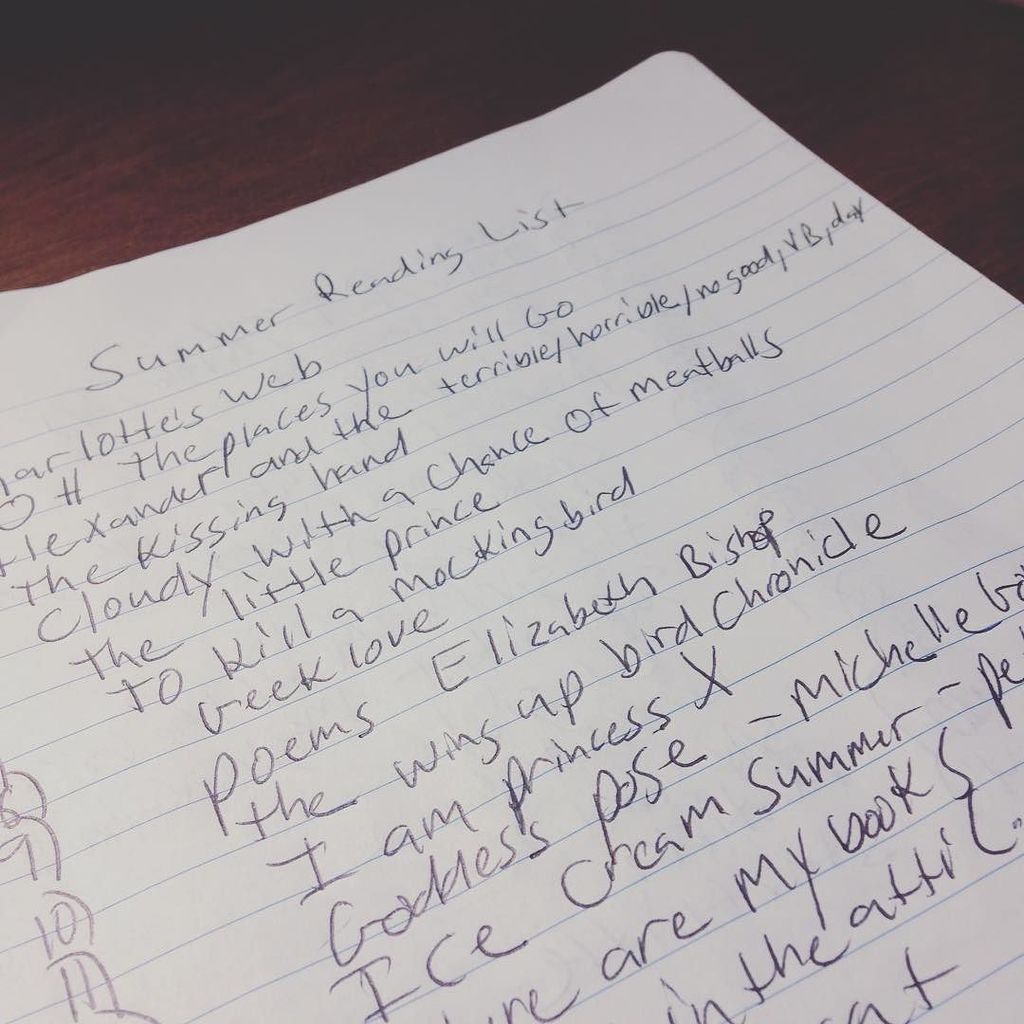 Summer Reading List
harlotte's web
O H the places you will Go
Alexander/and the terrible/horrible/no good, VB, day
the kissing hand
Cloudy with a chance of meatballs
the little prince
TO Kill a mockingbird
Geek love
8)
9)
Poems Elizabeth Bishop
10)
the wing up bird Chronicle
11)
I am princess X
Goddess pose - Michelle
ICe Cream Summer - pe
are my books
in the attic